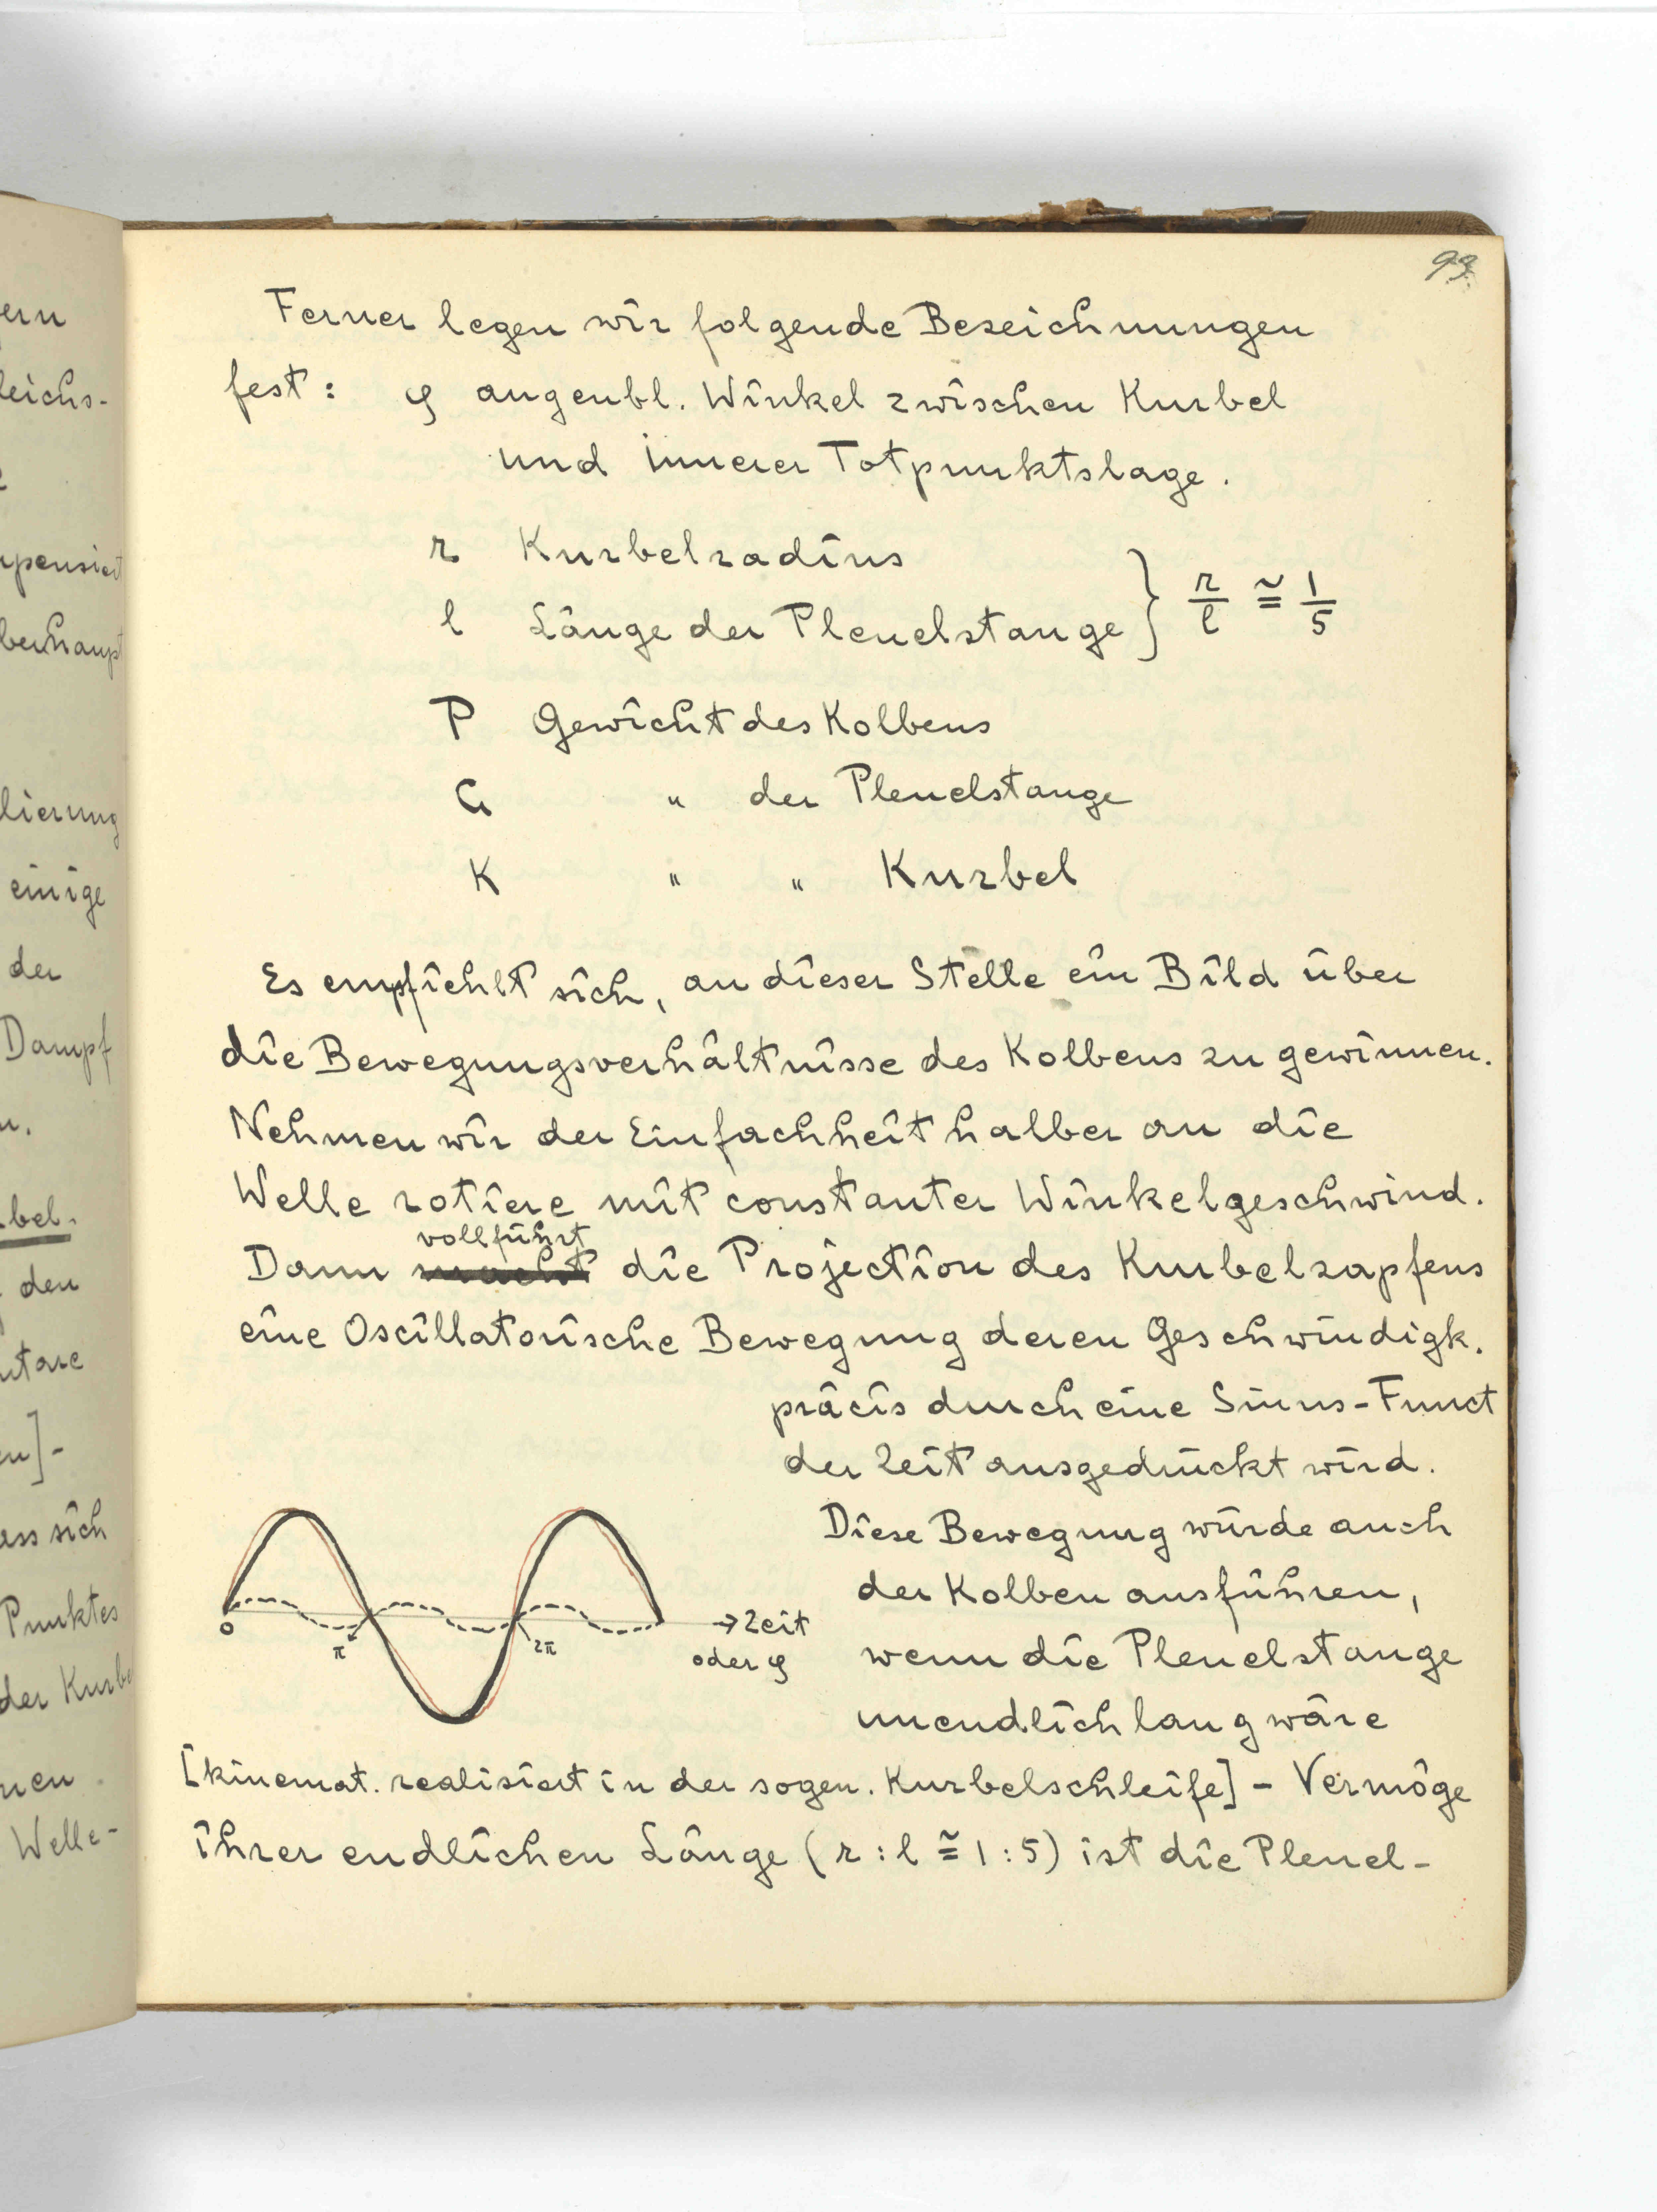 ern
leichs-
pensiert
berhaupt
lierung
einige
der
Dampf
bel.
den
ntare
en]-
ass sich
Punktes
der Kurbe
nen
Welle-
93.
Ferner legen wir folgende Bezeichnungen
fest: φ augenbl. Winkel zwischen Kurbel
und innerer Totpunktslage.
r Kurbelradius
l Länge der Pleuelstange } r/l ≅ 1/5
P Gewicht des Kolbens
G " der Pleuelstange
K " " Kurbel
Es empfiehlt sich, an dieser Stelle ein Bild über
die Bewegungsverhältnisse des Kolbens zu gewinnen.
Nehmen wir der Einfachheit halber an die
Welle rotiere mit constanter Winkelgeschwind.
vollführt
Dann macht die Projection des Kurbelzapfens
eine Oscillatorische Bewegung deren Geschwindigk.
präcis durch eine Sinus-Funct
der Zeit ausgedrückt wird.
Diese Bewegung würde auch
der Kolben ausführen,
wenn die Pleuelstange
unendlich lang wäre
0 π 2π → Zeit
oder φ
[kinemat. realisiert in der sogen. Kurbelschleife] - Vermöge
ihrer endlichen Länge (r : l ≅ 1 : 5) ist die Pleuel-